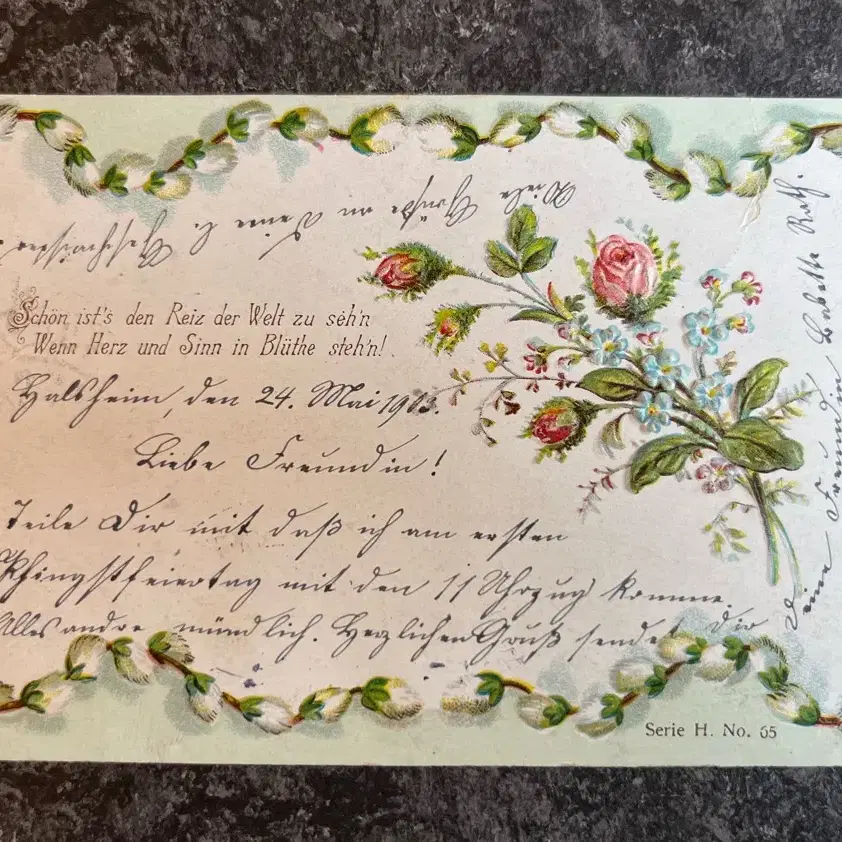 Schön ist's den Reiz der Welt zu seh'n
Wenn Herz und Sinn in Blüthe steh'n!
Halsheim, den 24. Mai 1903.
Liebe Freundin!
Teile Dir mit daß ich am ersten
Pfingstfeiertag mit den 11 Uhrzug komme.
Alles andre mündlich. Herzlichen Gruß sendet Dir
Deine Freundin Babette Rath.
Viele Grüße an Deine l. Geschwister
Serie H. No. 65